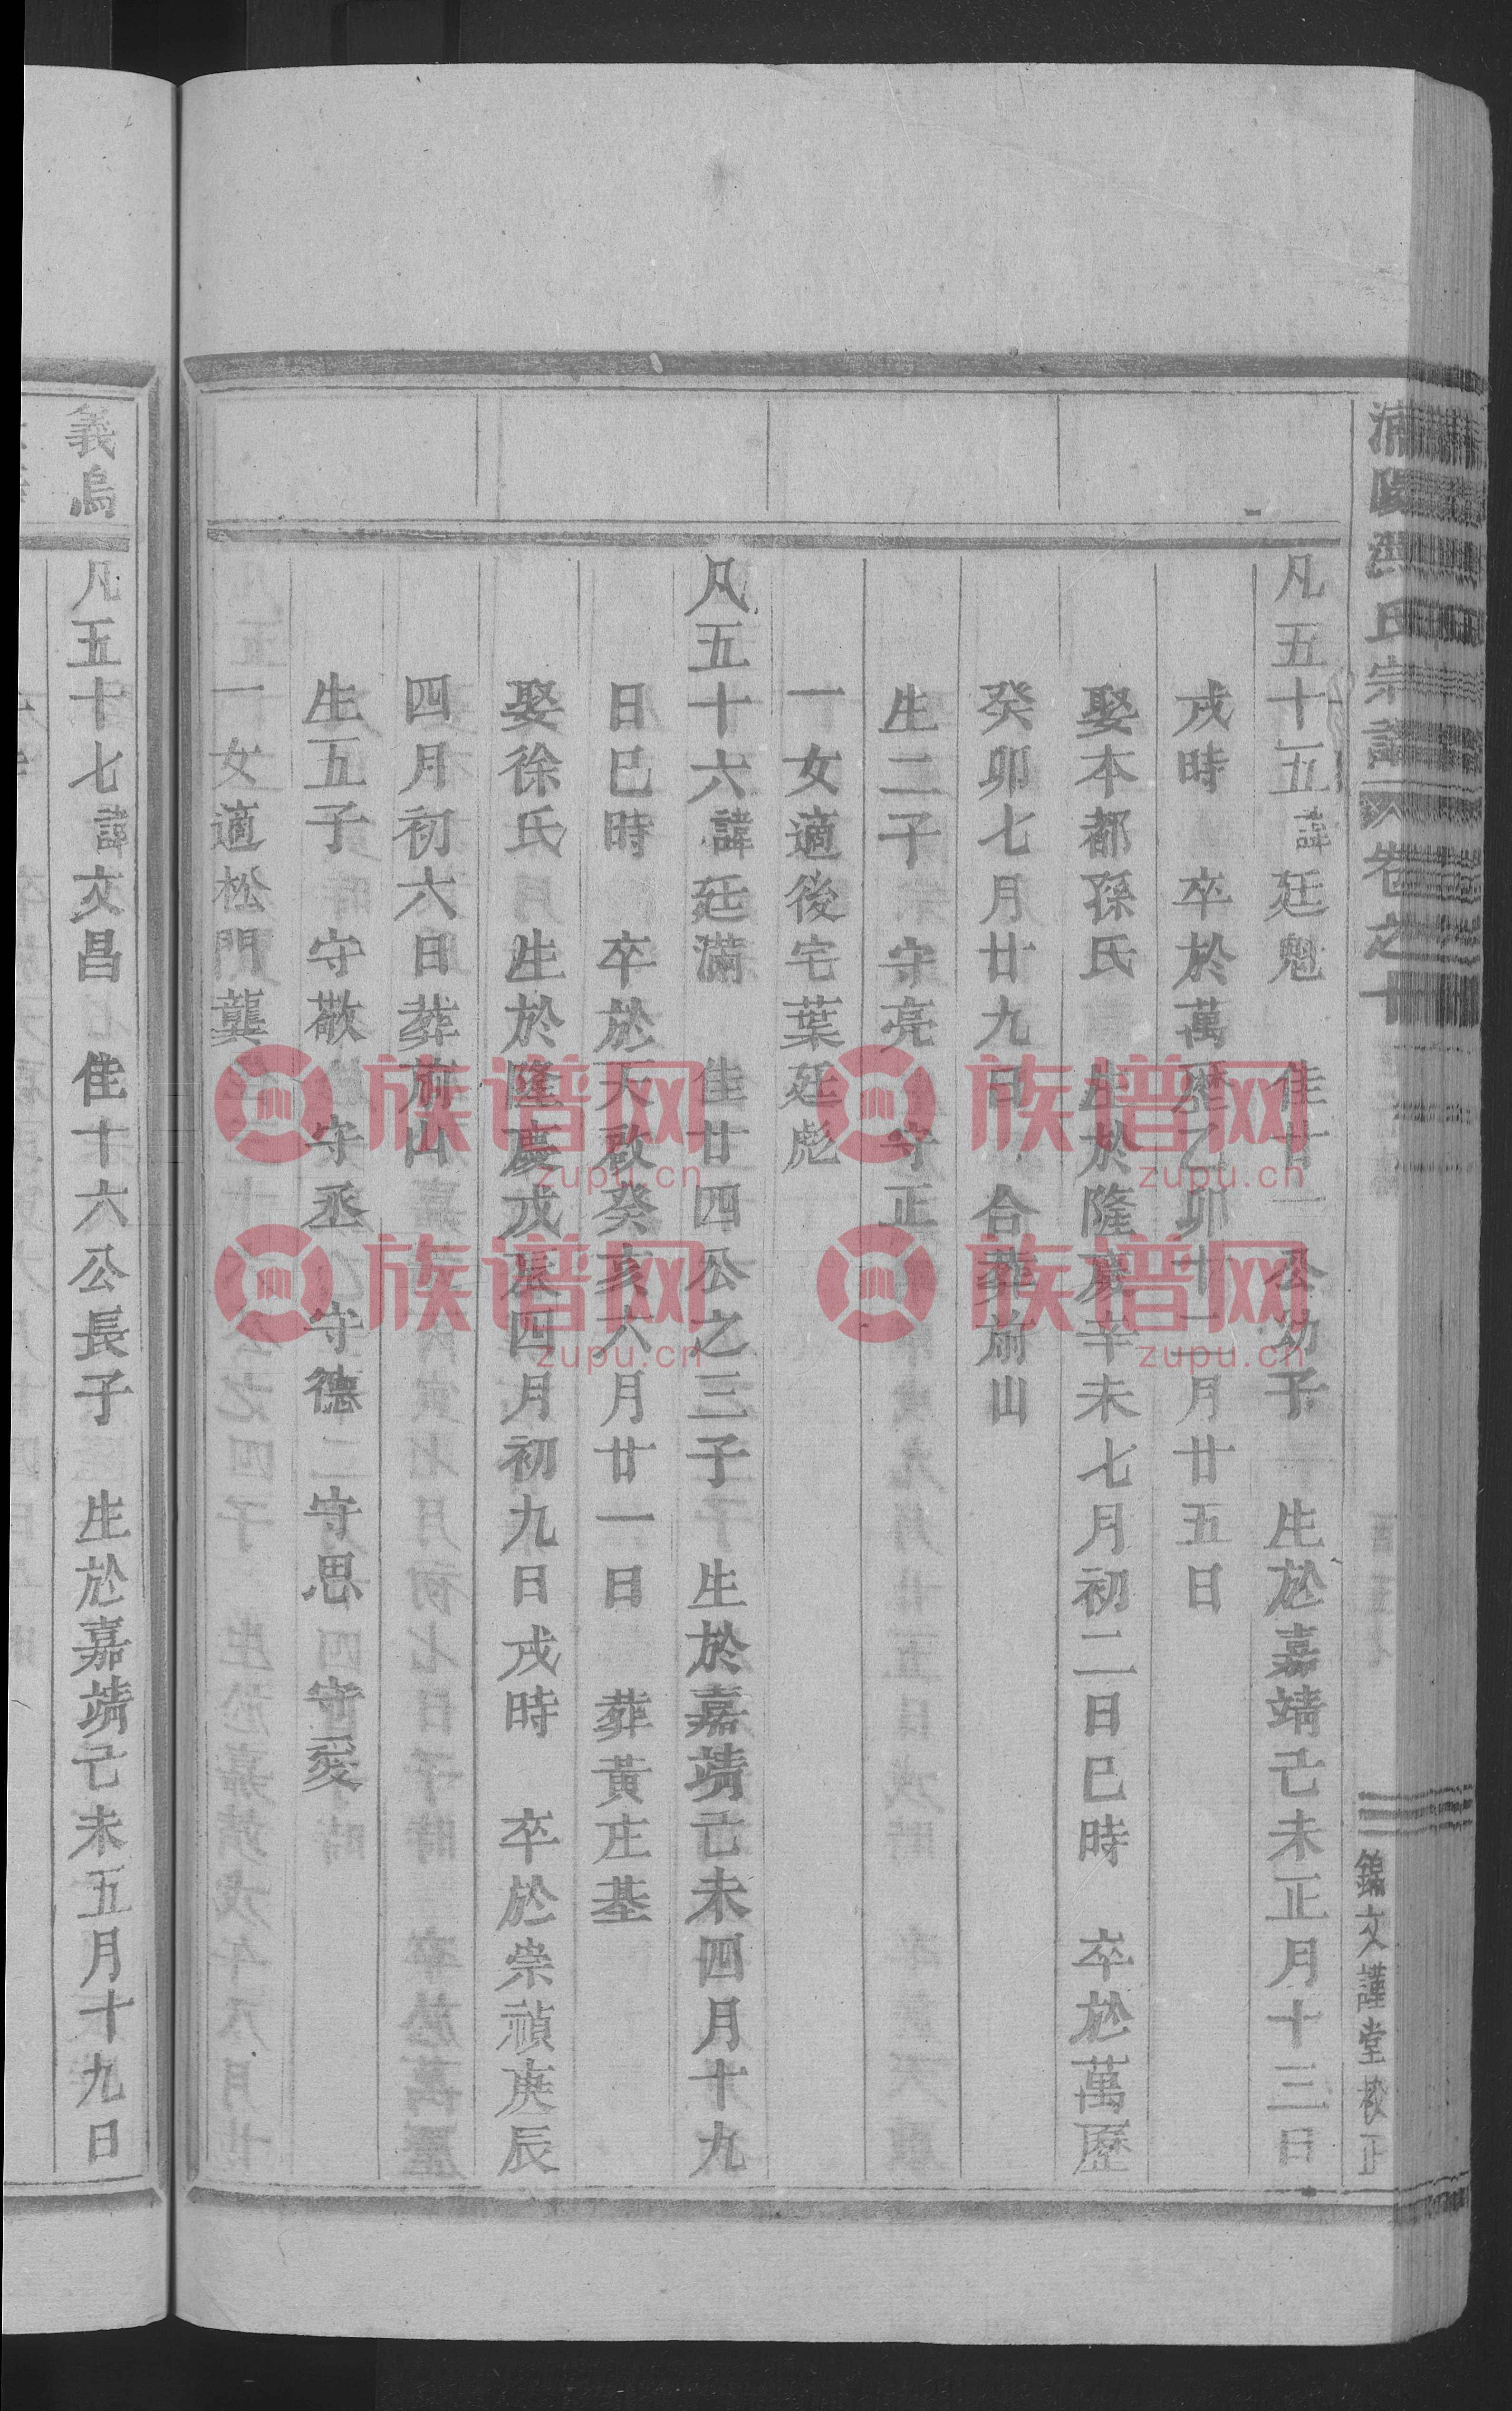 氏宗譜 卷之十
錦文謹堂校正
凡五十五諱廷魁 佳廿一公幼子 生於嘉靖己未正月十三日
戌時 卒於萬歷乙卯十二月廿五日
娶本都孫氏 生於隆慶辛未七月初二日巳時 卒於萬歷
癸卯七月廿九日 合葬前山
生二子 守亮 守正
一女適後宅葉廷彪
凡五十六諱廷滿 佳廿四公之三子 生於嘉靖己未四月十九
日巳時 卒於天啟癸亥六月廿一日 葬黃庄基
娶徐氏 生於隆慶戊辰四月初九日戌時 卒於崇禎庚辰
四月初六日葬前山
生五子 守敬 守丞 守德 守思 守愛
一女適松門龔
義烏
凡五十七諱文昌 佳十六公長子 生於嘉靖己未五月十九日
族谱网
zupu.cn
族谱网
zupu.cn
族谱网
zupu.cn
族谱网
zupu.cn